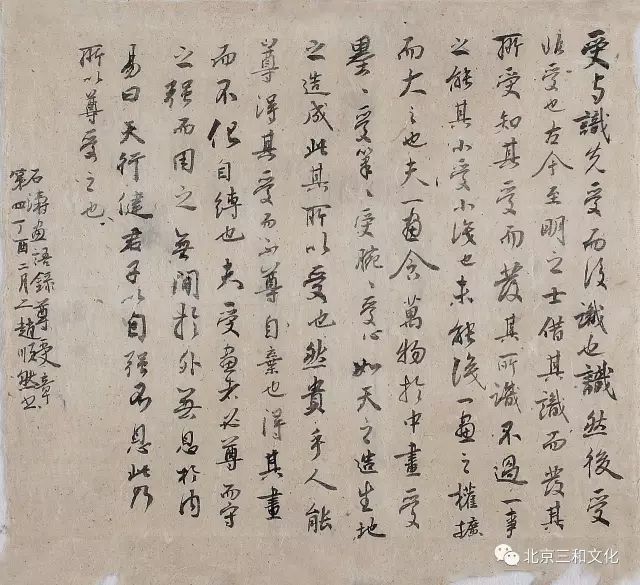 受与識先受而後識也識然後受
非受也古今至明之士借其識而發其
所受知其受而發其所識不過一事
之能其小受小識也未能識一畫之權擴
而大之也夫一畫含萬物於中畫受
墨〻受筆〻受腕〻受心如天之造生地
之造成此其所以受也然貴乎人能
尊得其受而不尊自棄也得其畫
而不化自縛也夫受畫者必尊而守
之強而用之無間於外無息於内
易曰天行健君子以自強不息此乃
所以尊受之也
石濤畫語錄尊受章
第四丁酉二月 趙順然書
北京三和文化